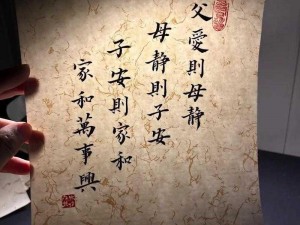 父愛則母静
母静則子安
子安則家和
家和萬事興